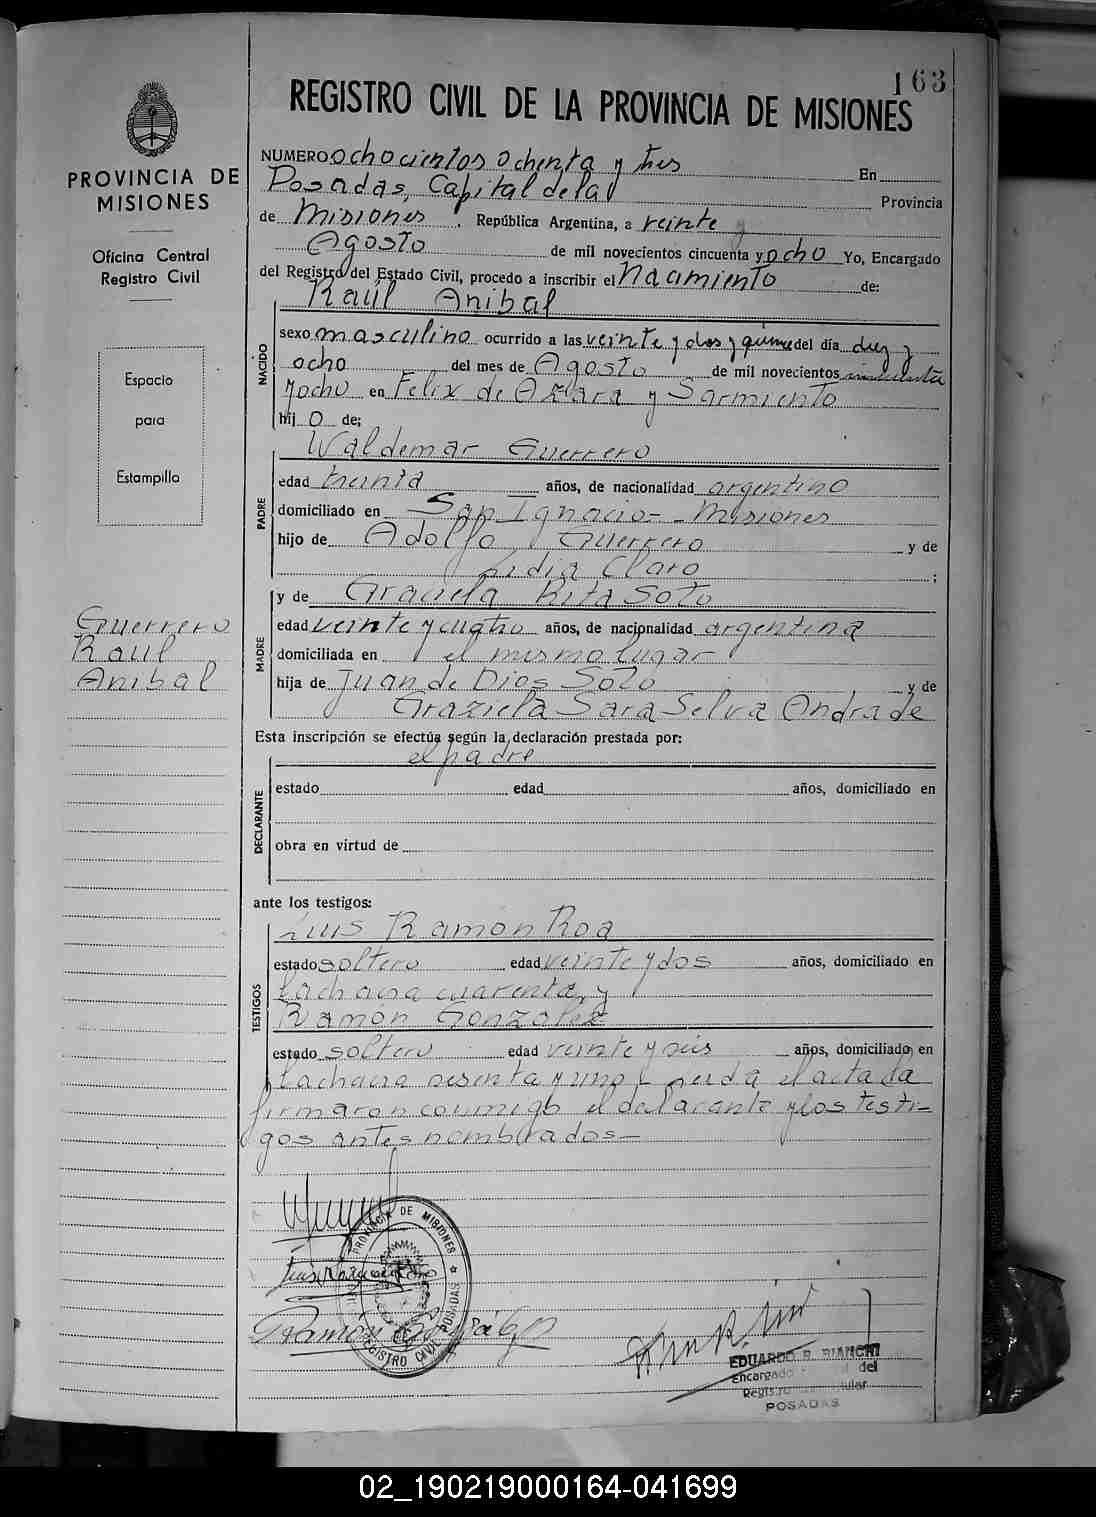 163
REGISTRO CIVIL DE LA PROVINCIA DE MISIONES
PROVINCIA DE
MISIONES
Oficina Central
Registro Civil
Espacio
para
Estampilla
Guerrero
Raúl
Anibal
NUMERO ochocientos ochenta y tres En
Posadas, Capital de la Provincia
de Misiones, República Argentina, a veinte
Agosto de mil novecientos cincuenta y ocho Yo, Encargado
del Registro del Estado Civil, procedo a inscribir el Nacimiento de:
Raúl Anibal
NACIDO
sexo masculino ocurrido a las veinte y dos y quince del día diez y
ocho del mes de Agosto de mil novecientos cincuenta
y ocho en Felix de Azara y Sarmiento
hijo de;
Waldemar Guerrero
PADRE
edad treinta años, de nacionalidad argentino
domiciliado en San Ignacio - Misiones
hijo de Adolfo Guerrero y de
Lidia Claro ;
y de Graciela Rita Soto
MADRE
edad veinte y cuatro años, de nacionalidad argentina
domiciliada en el mismo lugar
hija de Juan de Dios Soto y de
Graziela Sara Selva Andrade
Esta inscripción se efectúa según la declaración prestada por:
el padre
DECLARANTE
estado edad años, domiciliado en
obra en virtud de
ante los testigos:
Luis Ramón Roa
TESTIGOS
estado soltero edad veinte y dos años, domiciliado en
Lachacra cuarenta y
Ramón Gonzalez
estado soltero edad veinte y seis años, domiciliado en
Lachacra sesenta y uno el acta la
firmaron conmigo el declarante y los testi-
gos antes nombrados-
Ramón
PROVINCIA DE MISIONES
REGISTRO CIVIL POSADAS
EDUARDO R. BIANCHI
Encargado del
POSADAS
02_190219000164-041699